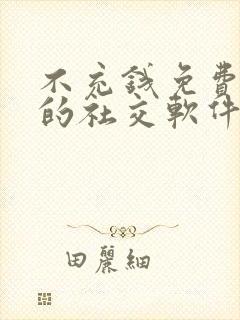 不充錢免費
的社交軟件
田麗細